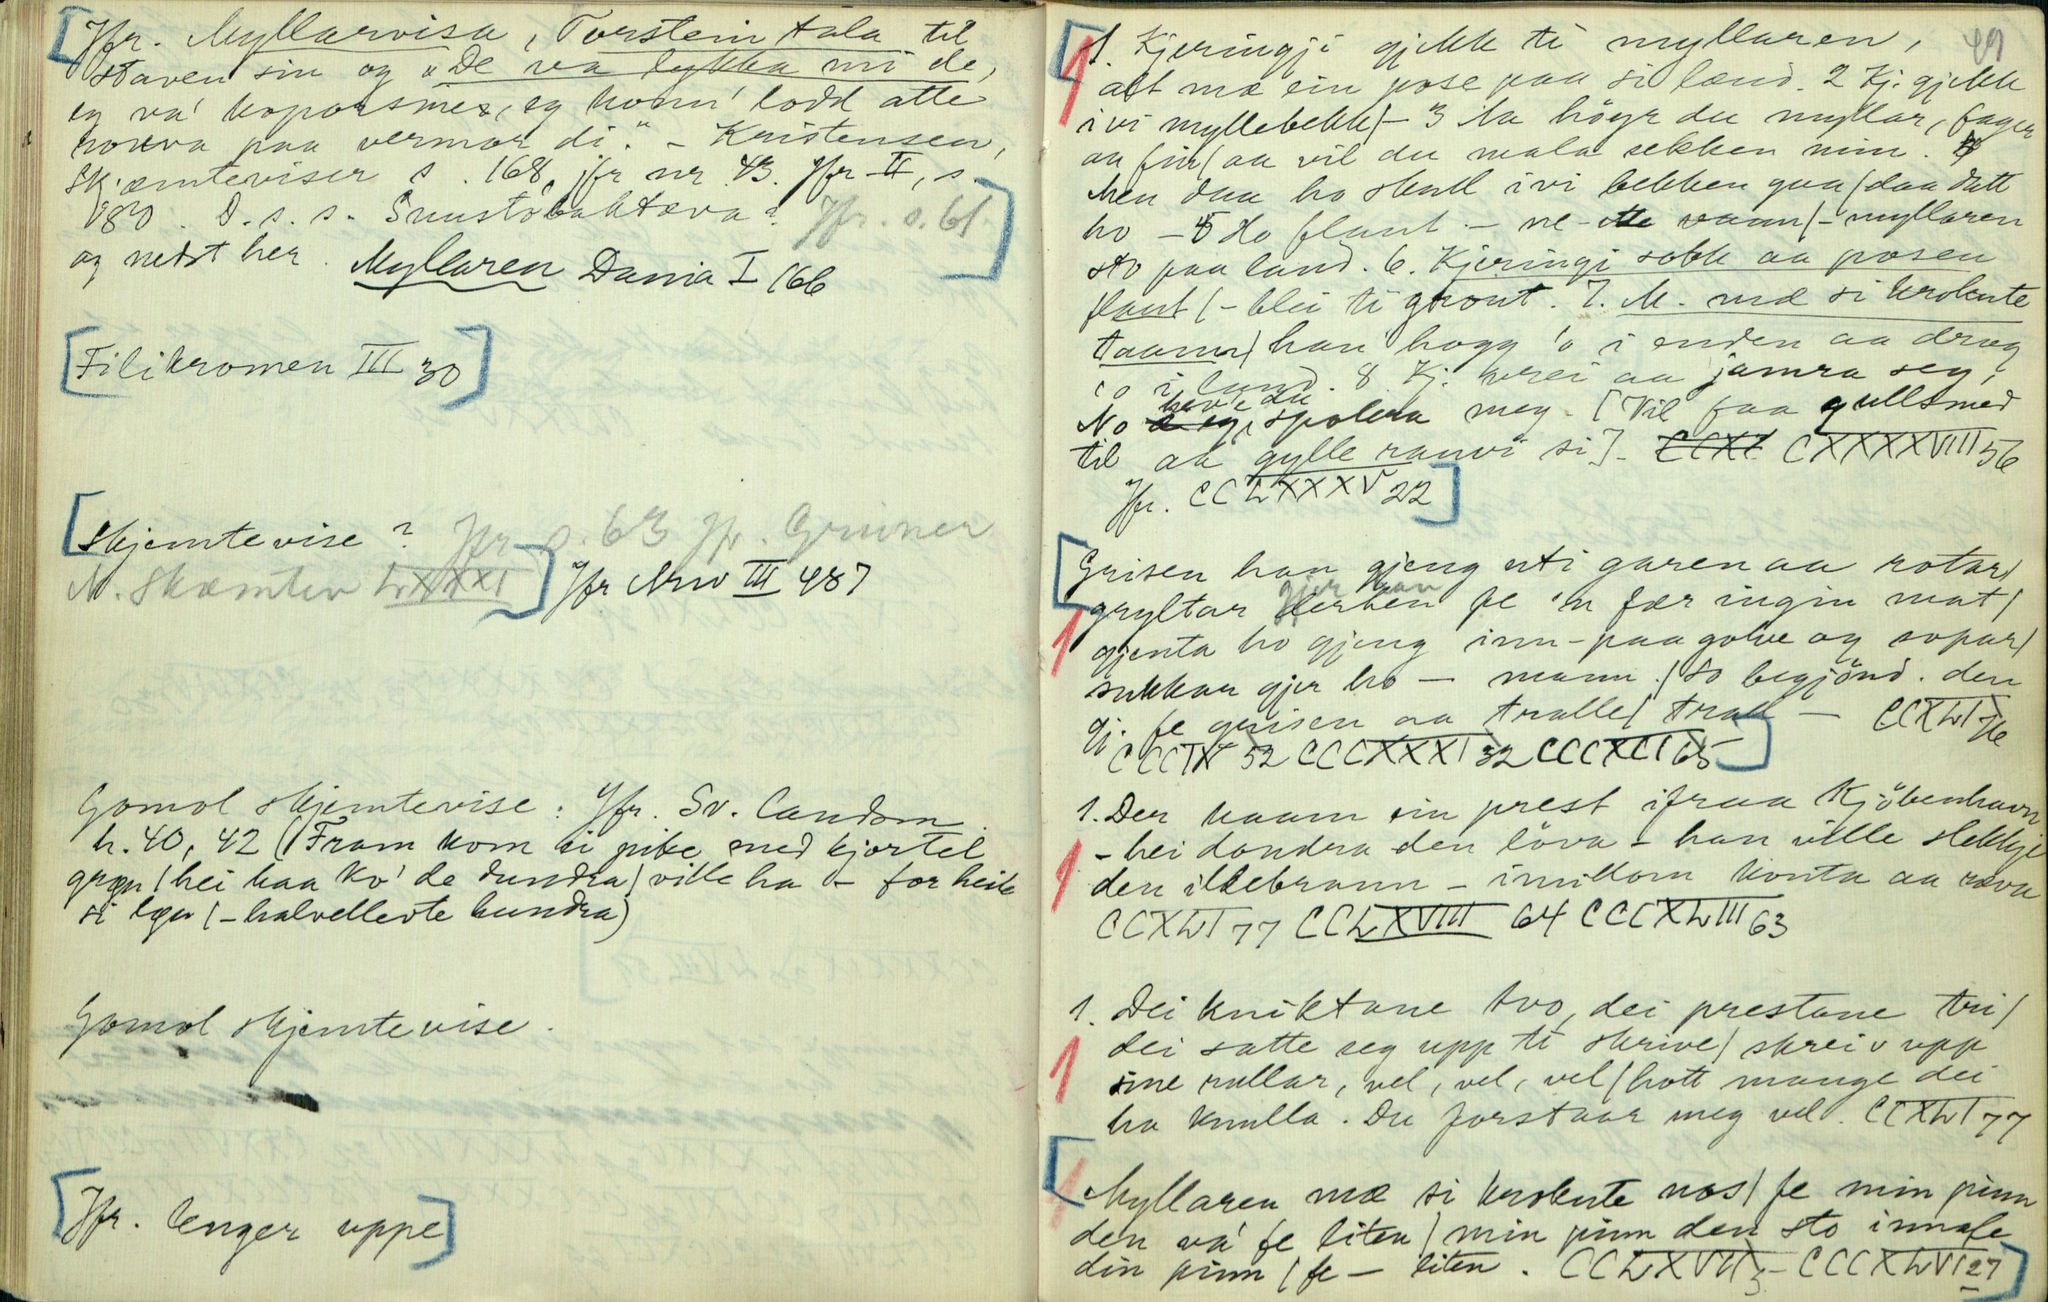 Jfr. Myllarvisa, Torstein tala til
staven sin og "De va lykka mi de,
eg va' koparsmed, eg kom' lodd atte
paa vermor di." - Kristensen,
Skjæmteviser s. 168, jfr nr. 43. Jfr II, s.
180. D. s. s. Jfr. s. 61
og nedst her. Myllaren Dania I 166
[Filikromen III 30]
[Skjemtevise? Jfr s. 63 jfr. Gruner
N. Skæmtev LXXXI] Jfr Arw III 487
Gomol skjemtevise: Jfr. Sv. Landsm.
h. 40, 42 (Fram kom ei pike med kjortel
grøn / hei haa ko' de dundra / ville ha o - for heile
si løn / - halvellevte hundra)
Gomol skjemtevise.
[Jfr. lenger uppe]
49
1. Kjeringji gjekk ti myllaren,
alt mæ ein pose paa si lænd. 2 Kj. gjekk
ivi myllebekk / - 3 Aa höyr du myllar, fager
aa fin / aa vil du mala sekken min. 4
Men daa ho skull ivi bekken gaa / daa datt
ho - 5 Ho flaut - ne-atte vaann / - myllaren
sto paa land. 6. Kjeringi sokk aa posen
flaut / - blei ti graut. 7. M. mæ si krokute
taann / han hogg 'o i enden aa drog
'o i land. 8 Kj. vrei aa jamra seg,
No heve du spolera meg. [Vil faa gullsmed
til aa gylle ranvi si]. CCXI CXXXXVIII 56
Jfr. CCLXXXV 22]
[Grisen han gjeng uti garen aa rotar /
gryltar gjer han fe 'n fær ingin mat /
gjenta ho gjeng inn-paa golve og sopar /
sukkar gjer ho - mann. / So begjönd. den
gj. fe grisen aa tralle / traa - CCXLI 76
CCCIV 52 CCCXXXI 32 CCCXCI 65]
1. Der kaam ein prest ifraa Kjöbenhavn
- hei dondra den löva - han ville slekkje
den ildebrann - imillom konta aa ræva
CCXLI 77 CCLXVIII 64 CCCXLIII 63
1. Dei kniktane tvo, dei prestane tri /
dei satte seg upp ti skrive / skreiv upp
sine rullar, vel, vel, vel / hott mange dei
ha knulla. Du forstaar meg vel. CCXLI 77
[Myllaren mæ si krokute nos / fe min pinn
den va' fe liten / min pinn den sto innafe
din pinn / fe - liten. CCLXVII 5 - CCCXLVI 27]